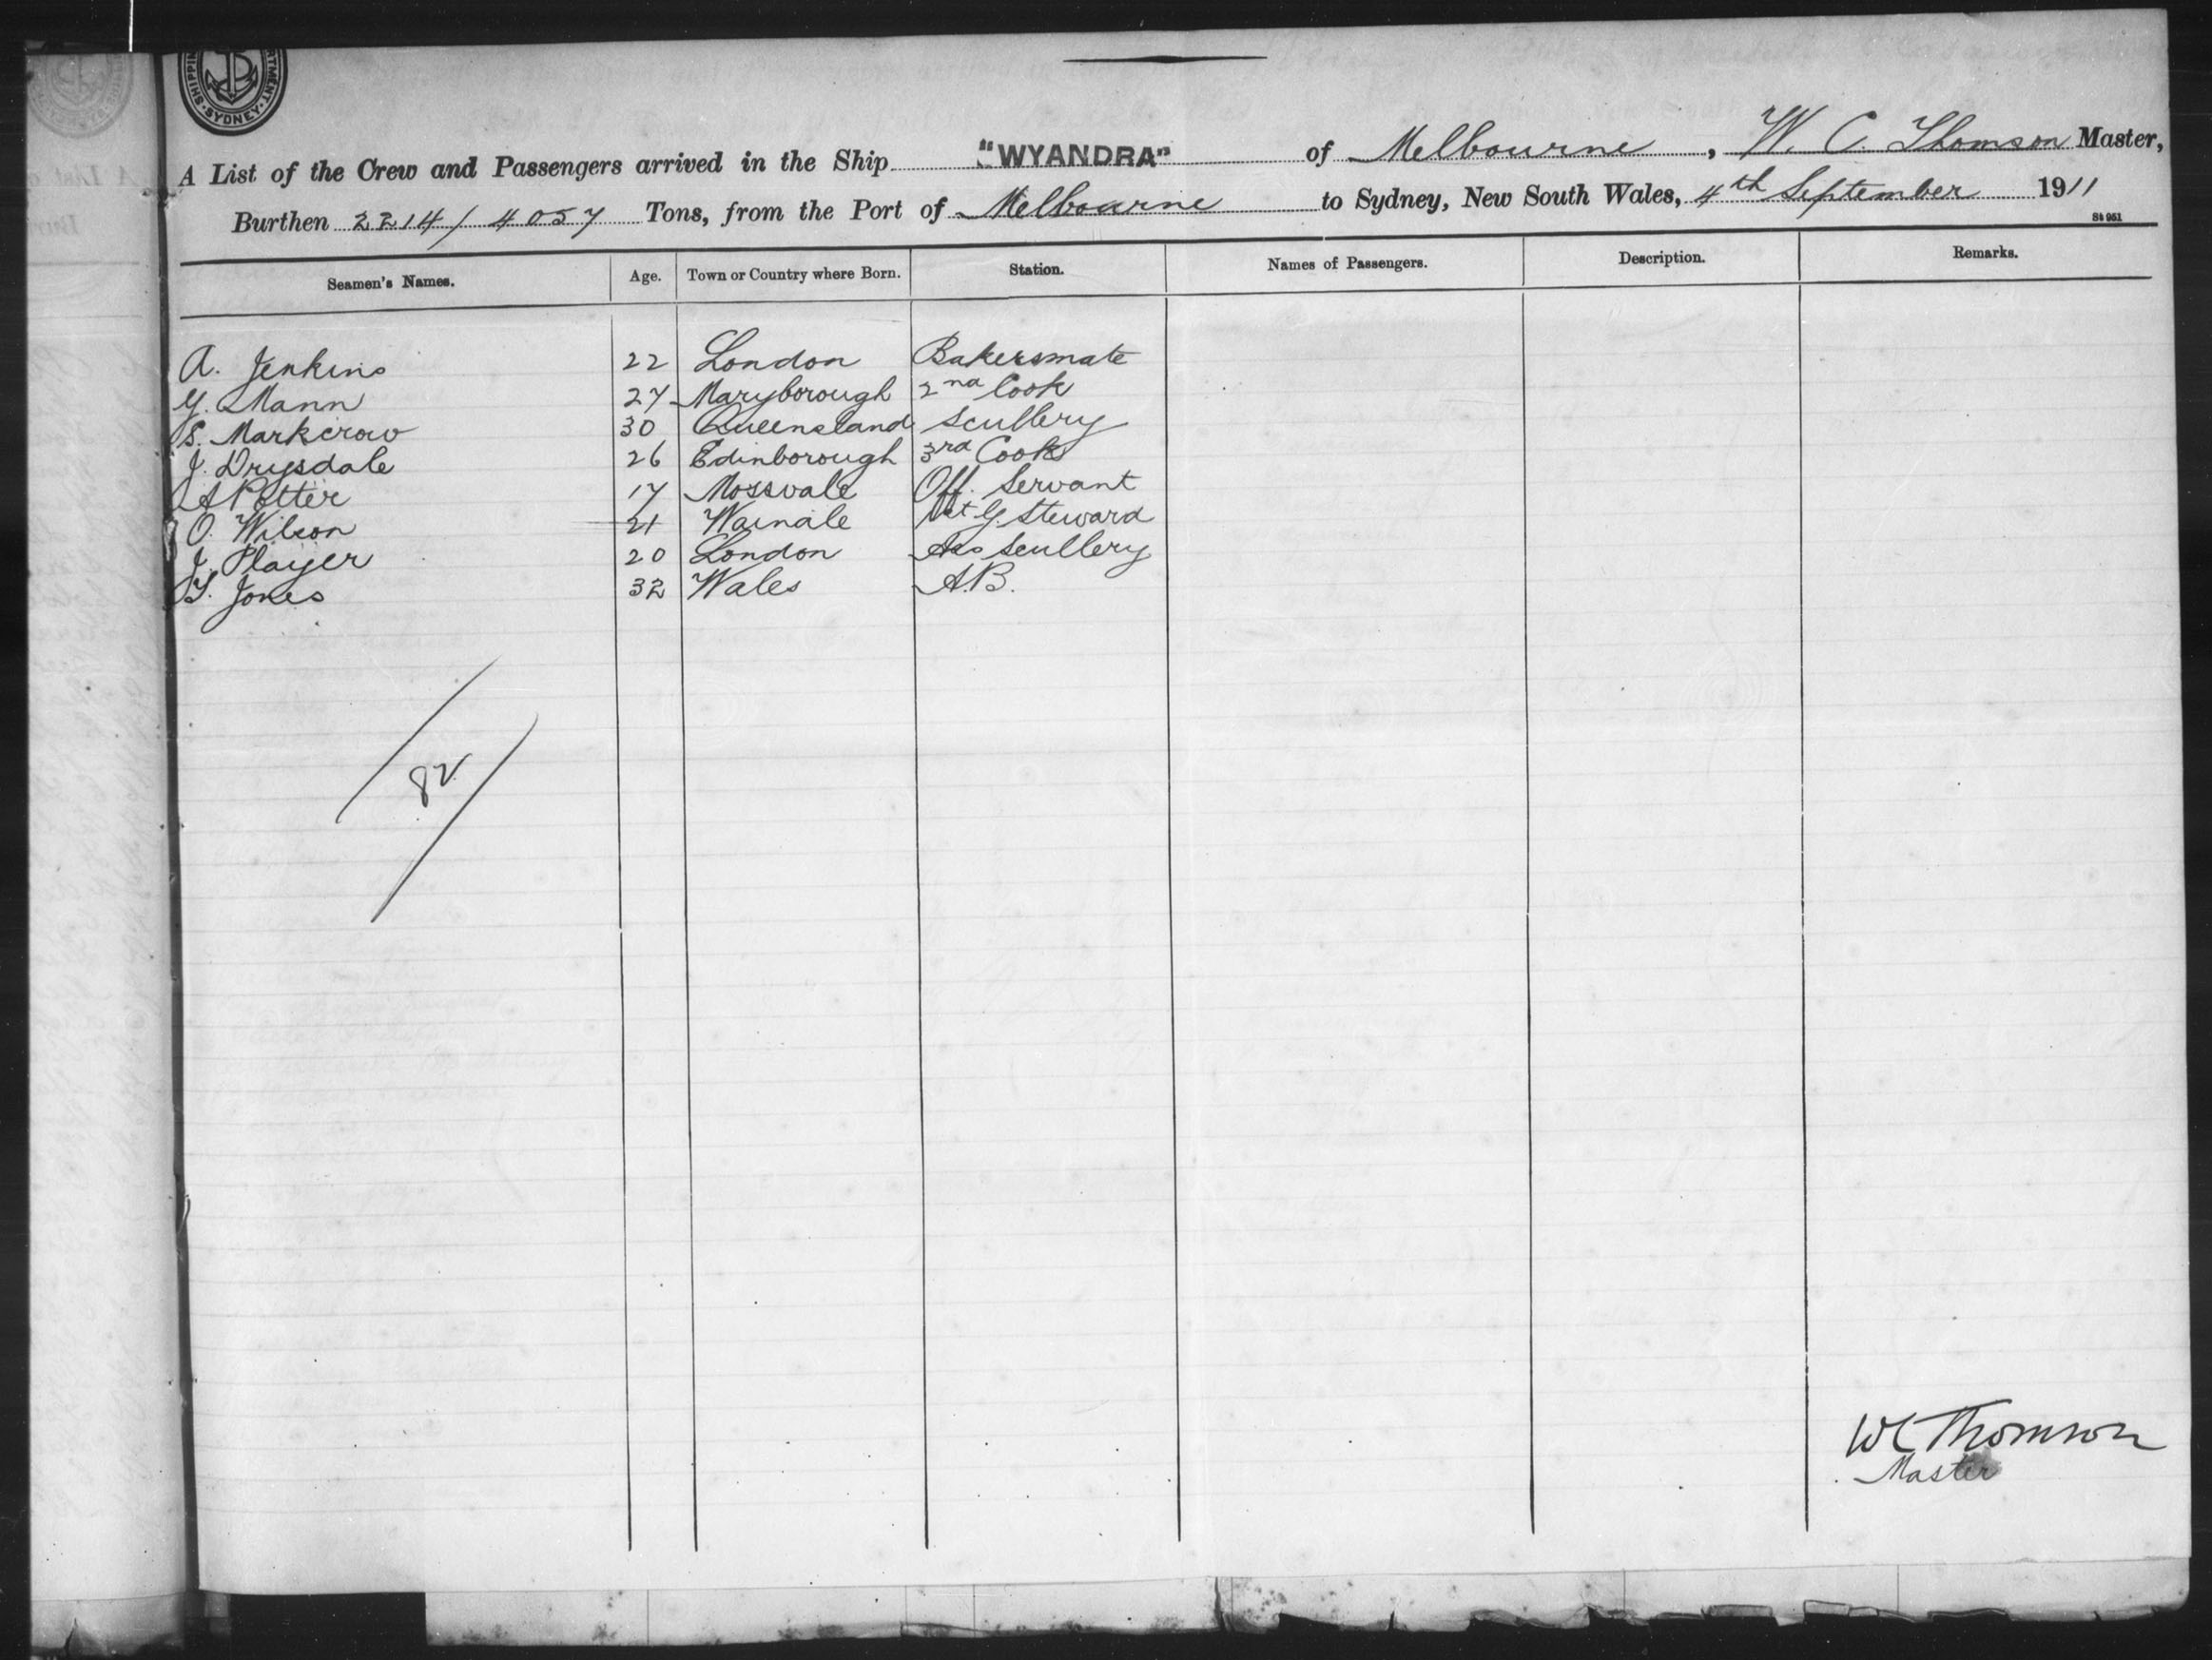 SHIPPIN RTMENT · SYDNEY ·
A List of the Crew and Passengers arrived in the Ship "WYANDRA" of Melbourne, W. C. Thomson Master,
Burthen 2214/4057 Tons, from the Port of Melbourne to Sydney, New South Wales, 4th September 1911
St 951
Seamen's Names. Age. Town or Country where Born. Station. Names of Passengers. Description. Remarks.
A. Jenkins 22 London Bakersmate
G. Mann 27 Maryborough 2nd Cook
S. Markcrow 30 Queensland Scullery
J. Drysdale 26 Edinborough 3rd Cook
A Potter 17 Mossvale Off. Servant
O. Wilson 21 G. Steward
J. Player 20 London Ass Scullery
T. Jones 32 Wales A.B.
82
WC Thomson
Master